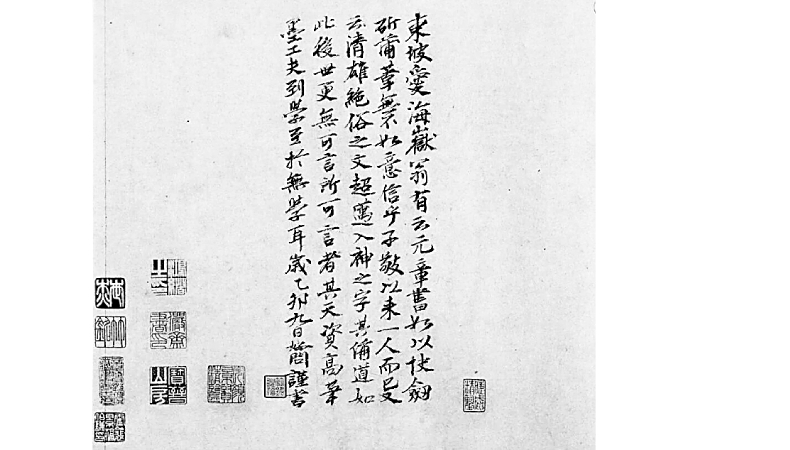 東坡愛海嶽翁有云元章書如以快劍
斫蒲葦無不如意信乎子敬以來一人而已又
云清雄絕俗之文超邁入神之字其稱道如
此後世更無可言所可言者其天資高筆
墨工夫到學至於無學耳歲乙卯九日謹書